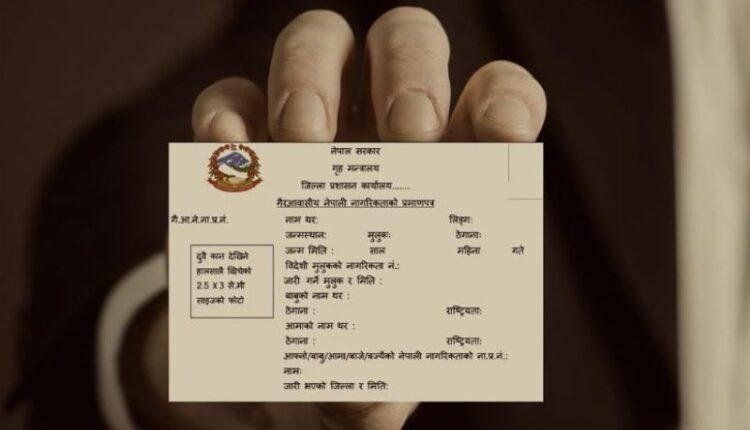 नेपाल सरकार
गृह मन्त्रालय
जिल्ला प्रशासन कार्यालय.......
गैरआवासीय नेपाली नागरिकताको प्रमाणपत्र
गै.आ.ने.ना.प्र.नं.
नाम थर: लिङ्ग:
जन्मस्थान: मुलुकः ठेगानाः
जन्म मिति : साल महिना गते
विदेशी मुलुकको नागरिकता नं.:
जारी गर्ने मुलुक र मिति :
बाबुको नाम थर :
ठेगाना : राष्ट्रियता:
आमाको नाम थर :
ठेगाना : राष्ट्रियता:
आफ्नो/बाबु/आमा/बाजे/बज्यैको नेपाली नागरिकताको ना.प्र.नं.:
नामः
जारी भएको जिल्ला र मिति:
दुवै कान देखिने
हालसालै खिचेको
2.5 X 3 से.मी
साइजको फोटो